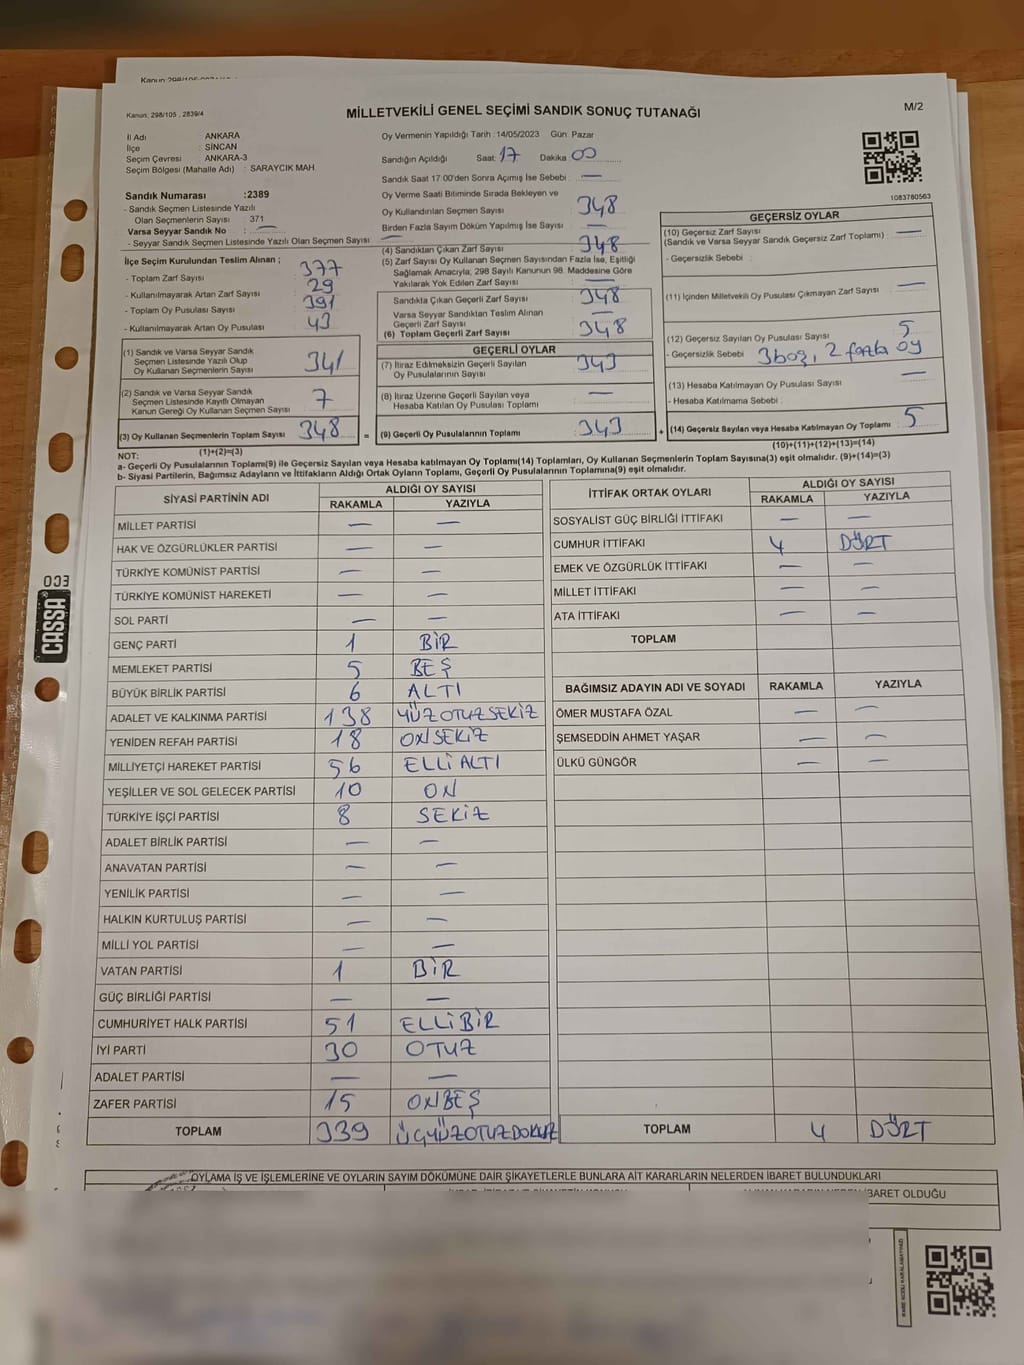 Kanun: 298/105 , 2839/4
MİLLETVEKİLİ GENEL SEÇİMİ SANDIK SONUÇ TUTANAĞI
M/2
İl Adı : ANKARA
İlçe : SİNCAN
Seçim Çevresi : ANKARA-3
Seçim Bölgesi (Mahalle Adı) : SARAYCIK MAH.
Sandık Numarası :2389
- Sandık Seçmen Listesinde Yazılı
Olan Seçmenlerin Sayısı : 371
Varsa Seyyar Sandık No : —
- Seyyar Sandık Seçmen Listesinde Yazılı Olan Seçmen Sayısı : —
İlçe Seçim Kurulundan Teslim Alınan ;
- Toplam Zarf Sayısı : 377
- Kullanılmayarak Artan Zarf Sayısı : 29
- Toplam Oy Pusulası Sayısı : 391
- Kullanılmayarak Artan Oy Pusulası : 43
(1) Sandık ve Varsa Seyyar Sandık
Seçmen Listesinde Yazılı Olup
Oy Kullanan Seçmenlerin Sayısı 341
(2) Sandık ve Varsa Seyyar Sandık
Seçmen Listesinde Kayıtlı Olmayan
Kanun Gereği Oy Kullanan Seçmen Sayısı 7
(3) Oy Kullanan Seçmenlerin Toplam Sayısı 348
(1)+(2)=(3)
Oy Vermenin Yapıldığı Tarih :14/05/2023 Gün: Pazar
Sandığın Açıldığı Saat: 17 Dakika 00
Sandık Saat 17:00'den Sonra Açımış İse Sebebi : —
Oy Verme Saati Bitiminde Sırada Bekleyen ve
Oy Kullandırılan Seçmen Sayısı 348
Birden Fazla Sayım Döküm Yapılmış İse Sayısı : —
(4) Sandıktan Çıkan Zarf Sayısı : 348
(5) Zarf Sayısı Oy Kullanan Seçmen Sayısından Fazla İse, Eşitliği
Sağlamak Amacıyla, 298 Sayılı Kanunun 98. Maddesine Göre
Yakılarak Yok Edilen Zarf Sayısı : —
Sandıkta Çıkan Geçerli Zarf Sayısı : 348
Varsa Seyyar Sandıktan Teslim Alınan
Geçerli Zarf Sayısı : —
(6) Toplam Geçerli Zarf Sayısı : 348
GEÇERLİ OYLAR
(7) İtiraz Edilmeksizin Geçerli Sayılan
Oy Pusulalarının Sayısı 343
(8) İtiraz Üzerine Geçerli Sayılan veya
Hesaba Katılan Oy Pusulaları Toplamı —
= (9) Geçerli Oy Pusulalarının Toplamı 343
1083780563
GEÇERSİZ OYLAR
(10) Geçersiz Zarf Sayısı
(Sandık ve Varsa Seyyar Sandık Geçersiz Zarf Toplamı) : —
- Geçersizlik Sebebi :
(11) İçinden Milletvekili Oy Pusulası Çıkmayan Zarf Sayısı : —
(12) Geçersiz Sayılan Oy Pusulası Sayısı 5
- Geçersizlik Sebebi 3 boş, 2 fazla oy
(13) Hesaba Katılmayan Oy Pusulası Sayısı : —
- Hesaba Katılmama Sebebi :
+ (14) Geçersiz Sayılan veya Hesaba Katılmayan Oy Toplamı : 5
(10)+(11)+(12)+(13)=(14)
NOT:
a- Geçerli Oy Pusulalarının Toplamı(9) ile Geçersiz Sayılan veya Hesaba katılmayan Oy Toplamı(14) Toplamları, Oy Kullanan Seçmenlerin Toplam Sayısına(3) eşit olmalıdır. (9)+(14)=(3)
b- Siyasi Partilerin, Bağımsız Adayların ve İttifakların Aldığı Ortak Oyların Toplamı, Geçerli Oy Pusulalarının Toplamına(9) eşit olmalıdır.
SİYASİ PARTİNİN ADI ALDIĞI OY SAYISI
RAKAMLA YAZIYLA
MİLLET PARTİSİ — —
HAK VE ÖZGÜRLÜKLER PARTİSİ — —
TÜRKİYE KOMÜNİST PARTİSİ — —
TÜRKİYE KOMÜNİST HAREKETİ — —
SOL PARTİ — —
GENÇ PARTİ 1 BİR
MEMLEKET PARTİSİ 5 BEŞ
BÜYÜK BİRLİK PARTİSİ 6 ALTI
ADALET VE KALKINMA PARTİSİ 138 YÜZOTUZSEKİZ
YENİDEN REFAH PARTİSİ 18 ONSEKİZ
MİLLİYETÇİ HAREKET PARTİSİ 56 ELLİALTI
YEŞİLLER VE SOL GELECEK PARTİSİ 10 ON
TÜRKİYE İŞÇİ PARTİSİ 8 SEKİZ
ADALET BİRLİK PARTİSİ — —
ANAVATAN PARTİSİ — —
YENİLİK PARTİSİ — —
HALKIN KURTULUŞ PARTİSİ — —
MİLLİ YOL PARTİSİ — —
VATAN PARTİSİ 1 BİR
GÜÇ BİRLİĞİ PARTİSİ — —
CUMHURİYET HALK PARTİSİ 51 ELLİBİR
İYİ PARTİ 30 OTUZ
ADALET PARTİSİ — —
ZAFER PARTİSİ 15 ONBEŞ
TOPLAM 339 ÜÇYÜZOTUZDOKUZ
İTTİFAK ORTAK OYLARI ALDIĞI OY SAYISI
RAKAMLA YAZIYLA
SOSYALİST GÜÇ BİRLİĞİ İTTİFAKI — —
CUMHUR İTTİFAKI 4 DÖRT
EMEK VE ÖZGÜRLÜK İTTİFAKI — —
MİLLET İTTİFAKI — —
ATA İTTİFAKI — —
TOPLAM
BAĞIMSIZ ADAYIN ADI VE SOYADI RAKAMLA YAZIYLA
ÖMER MUSTAFA ÖZAL — —
ŞEMSEDDİN AHMET YAŞAR — —
ÜLKÜ GÜNGÖR — —
TOPLAM 4 DÖRT
OYLAMA İŞ VE İŞLEMLERİNE VE OYLARIN SAYIM DÖKÜMÜNE DAİR ŞİKAYETLERLE BUNLARA AİT KARARLARIN NELERDEN İBARET BULUNDUKLARI
İBARET OLDUĞU
CASSA